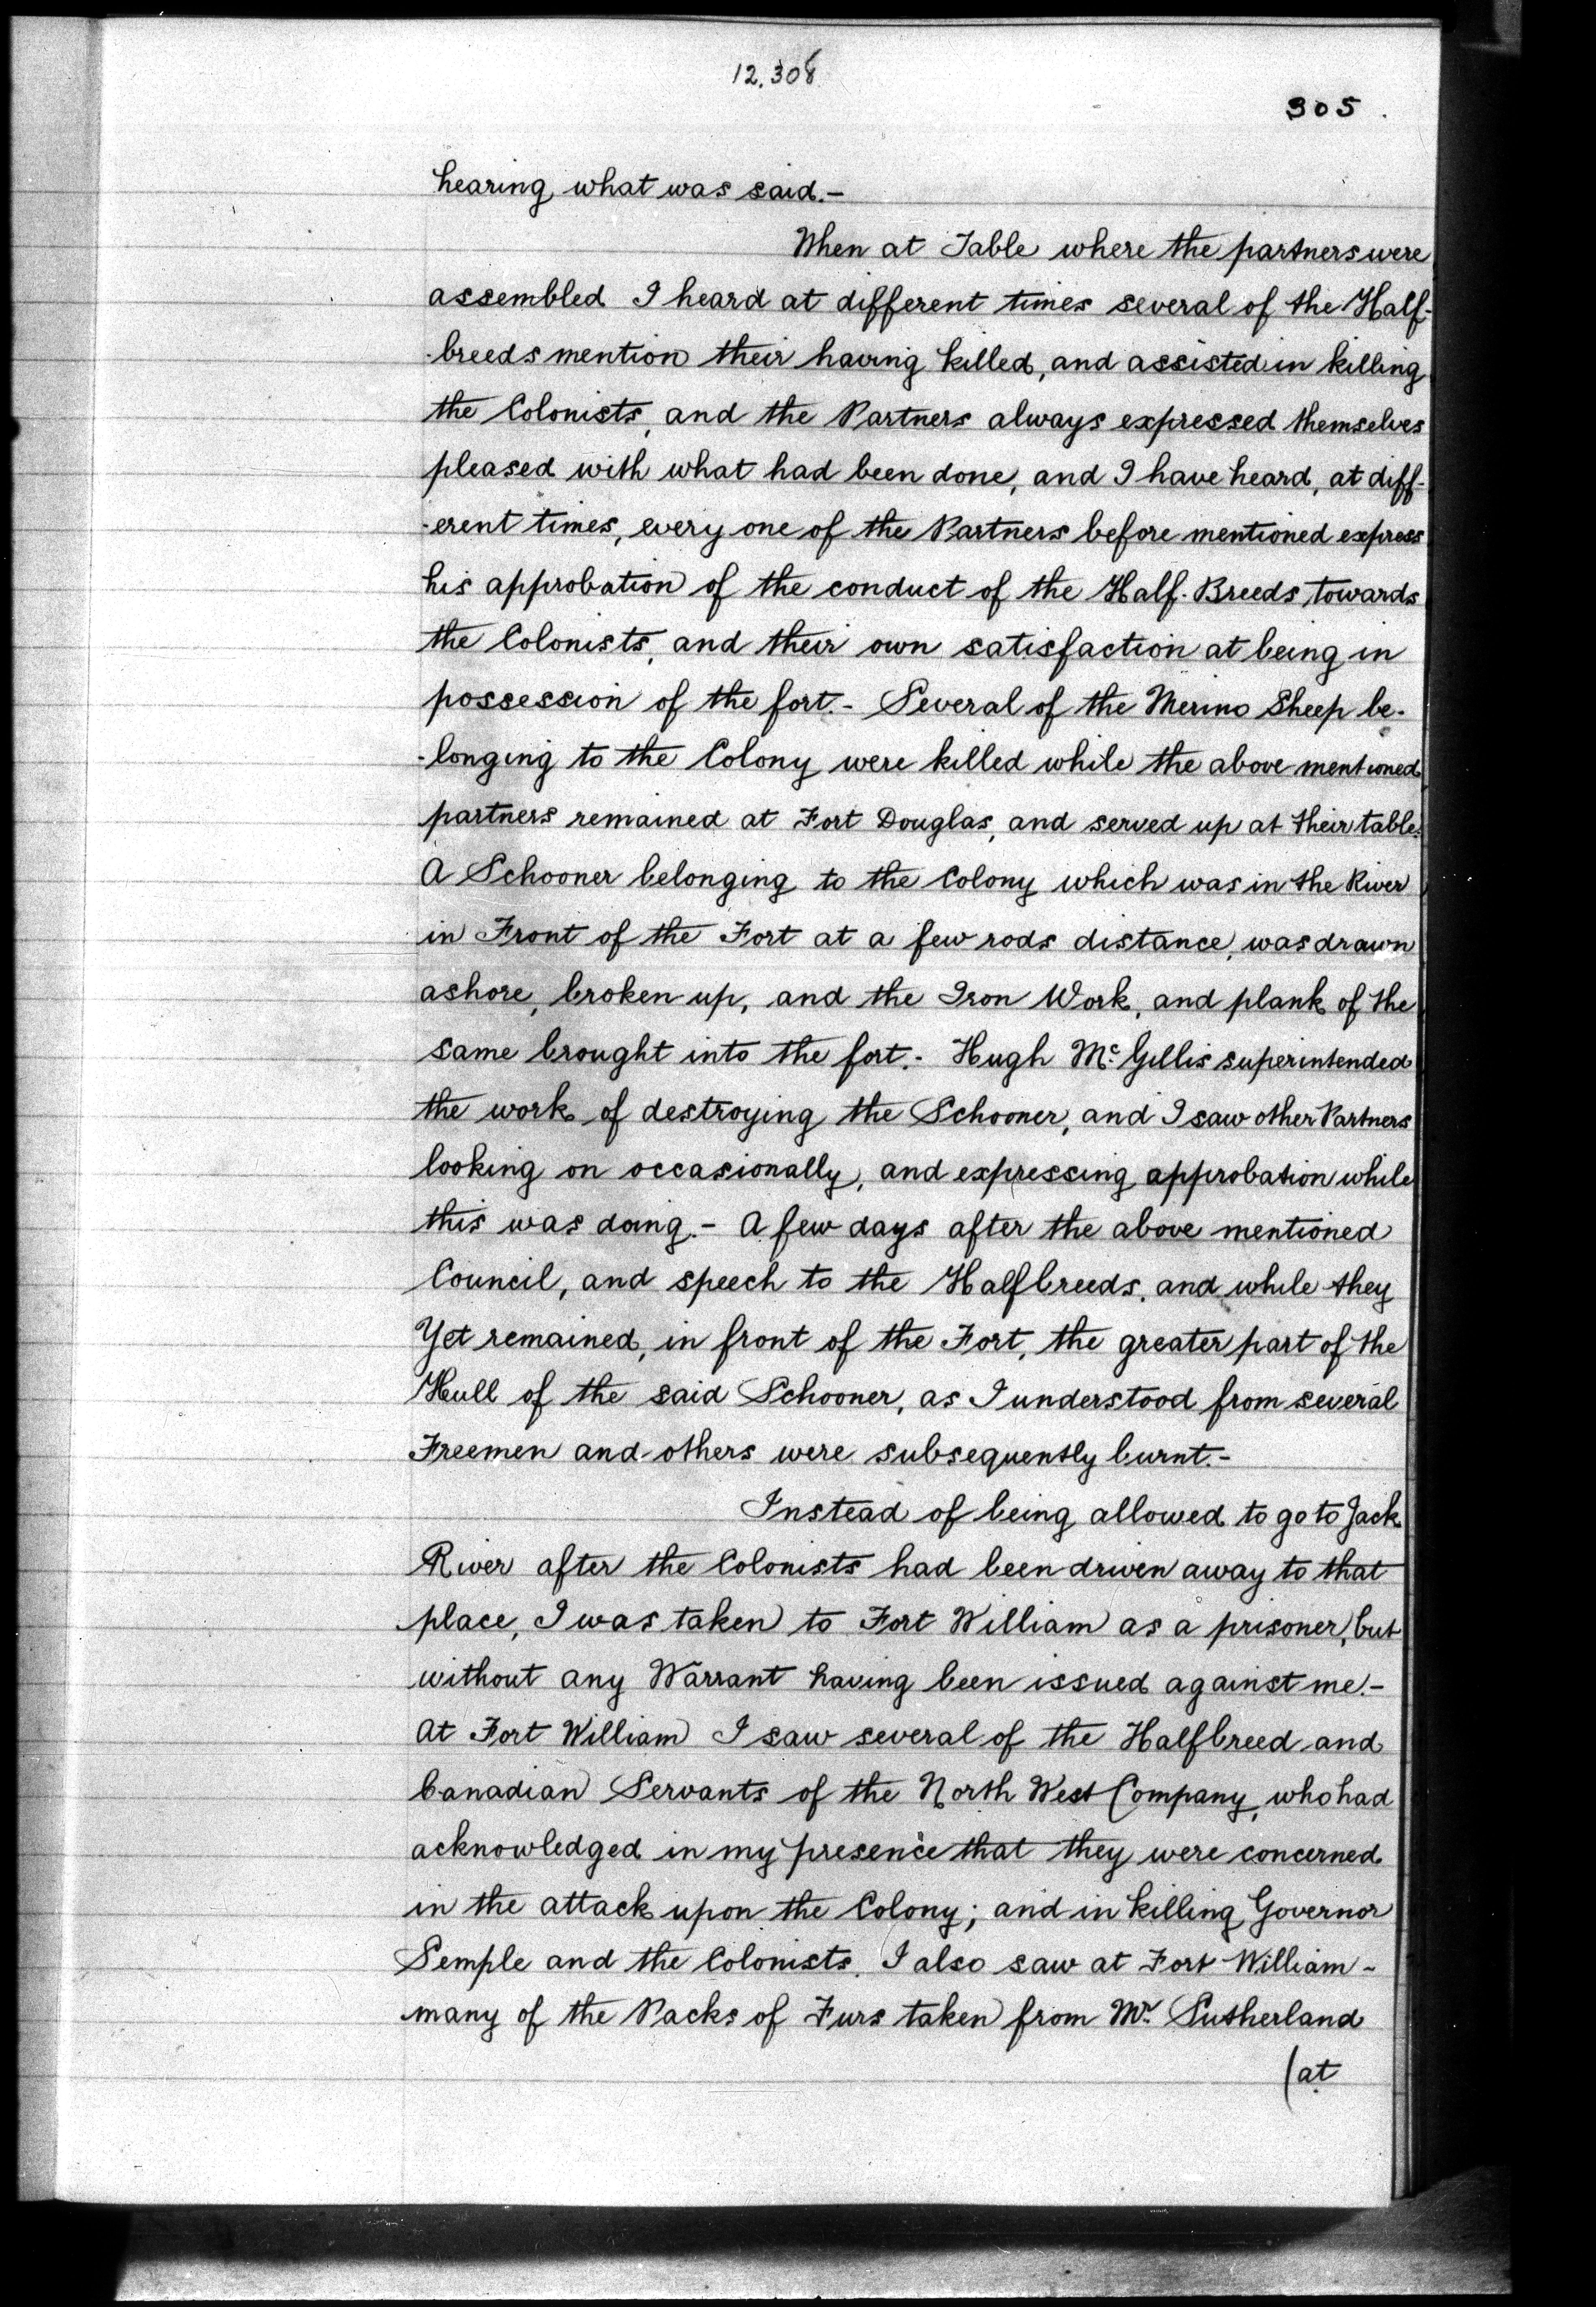 12.308
305.
hearing what was said.-
When at Table where the partners were
assembled I heard at different times several of the Half-
-breeds mention their having killed, and assisted in killing
the Colonists, and the Partners always expressed themselves
pleased with what had been done, and I have heard, at diff-
-erent times, every one of the Partners before mentioned express
his approbation of the conduct of the Half-Breeds, towards
the Colonists, and their own satisfaction at being in
possession of the fort.- Several of the Merino Sheep be-
-longing to the Colony were killed while the above mentioned
partners remained at Fort Douglas, and served up at their table.
A Schooner belonging to the Colony which was in the River
in Front of the Fort at a few rods distance, was drawn
ashore, broken up, and the Iron Work, and plank of the
same brought into the fort.- Hugh Mc. Gillis superintended
the work of destroying the Schooner, and I saw other Partners
looking on occasionally, and expressing approbation while
this was doing.- A few days after the above mentioned
Council, and speech to the Halfbreeds, and while they
Yet remained, in front of the Fort, the greater part of the
Hull of the said Schooner, as I understood from several
Freemen and others were subsequently burnt.-
Instead of being allowed to go to Jack
River after the Colonists had been driven away to that
place, I was taken to Fort William as a prisoner, but
without any Warrant having been issued against me.-
At Fort William I saw several of the Halfbreed and
Canadian Servants of the North West Company, who had
acknowledged in my presence that they were concerned
in the attack upon the Colony; and in killing Governor
Semple and the Colonists. I also saw at Fort William -
many of the Packs of Furs taken from Mr. Sutherland
(at